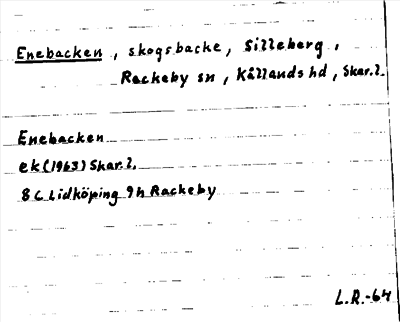 Enebacken, skogsbacke, Silleberg,
Rackeby sn, Kållands hd, Skar.l.
Enebacken
ek (1963) Skar.l.
8 C Lidköping 9h Rackeby
L.R.-64